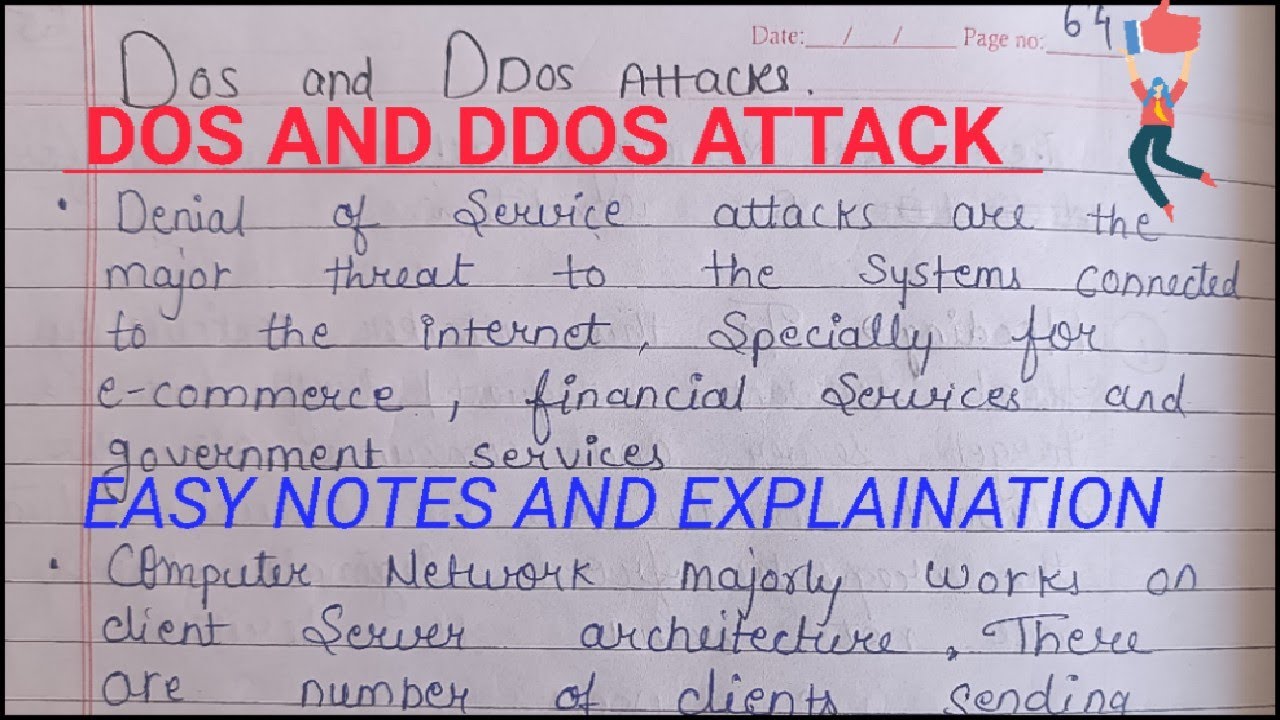 Date: / / Page no: 64
Dos and DDos Attacks.
DOS AND DDOS ATTACK
• Denial of Service attacks are the
major threat to the Systems connected
to the internet, Specially for
e-commerce, financial Services and
government services
EASY NOTES AND EXPLAINATION
• Computer Network majorly works on
client Server architecture, There
are number of clients sending